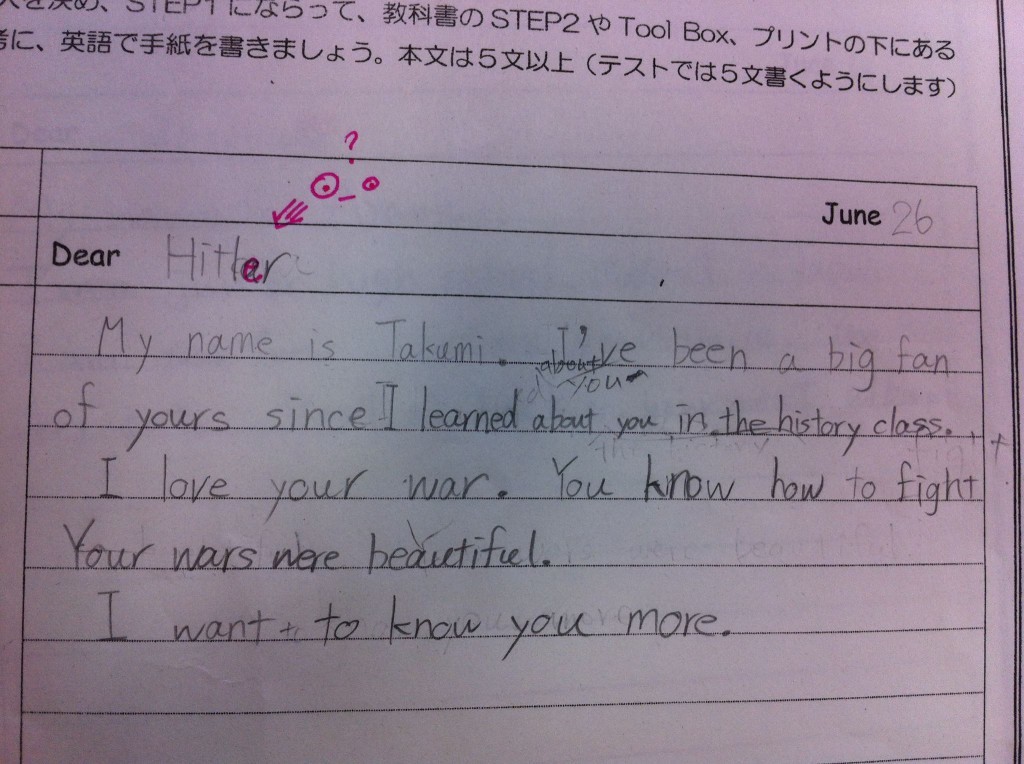 を決め、STEP1にならって、教科書のSTEP2やTool Box、プリントの下にある
に、英語で手紙を書きましょう。本文は5文以上（テストでは5文書くようにします）
?
June 26
Dear Hitler
My name is Takumi. I've been a big fan
of yours since I learned about you in the history class.
I love your war. You know how to fight
Your wars were beautiful.
I want to know you more.